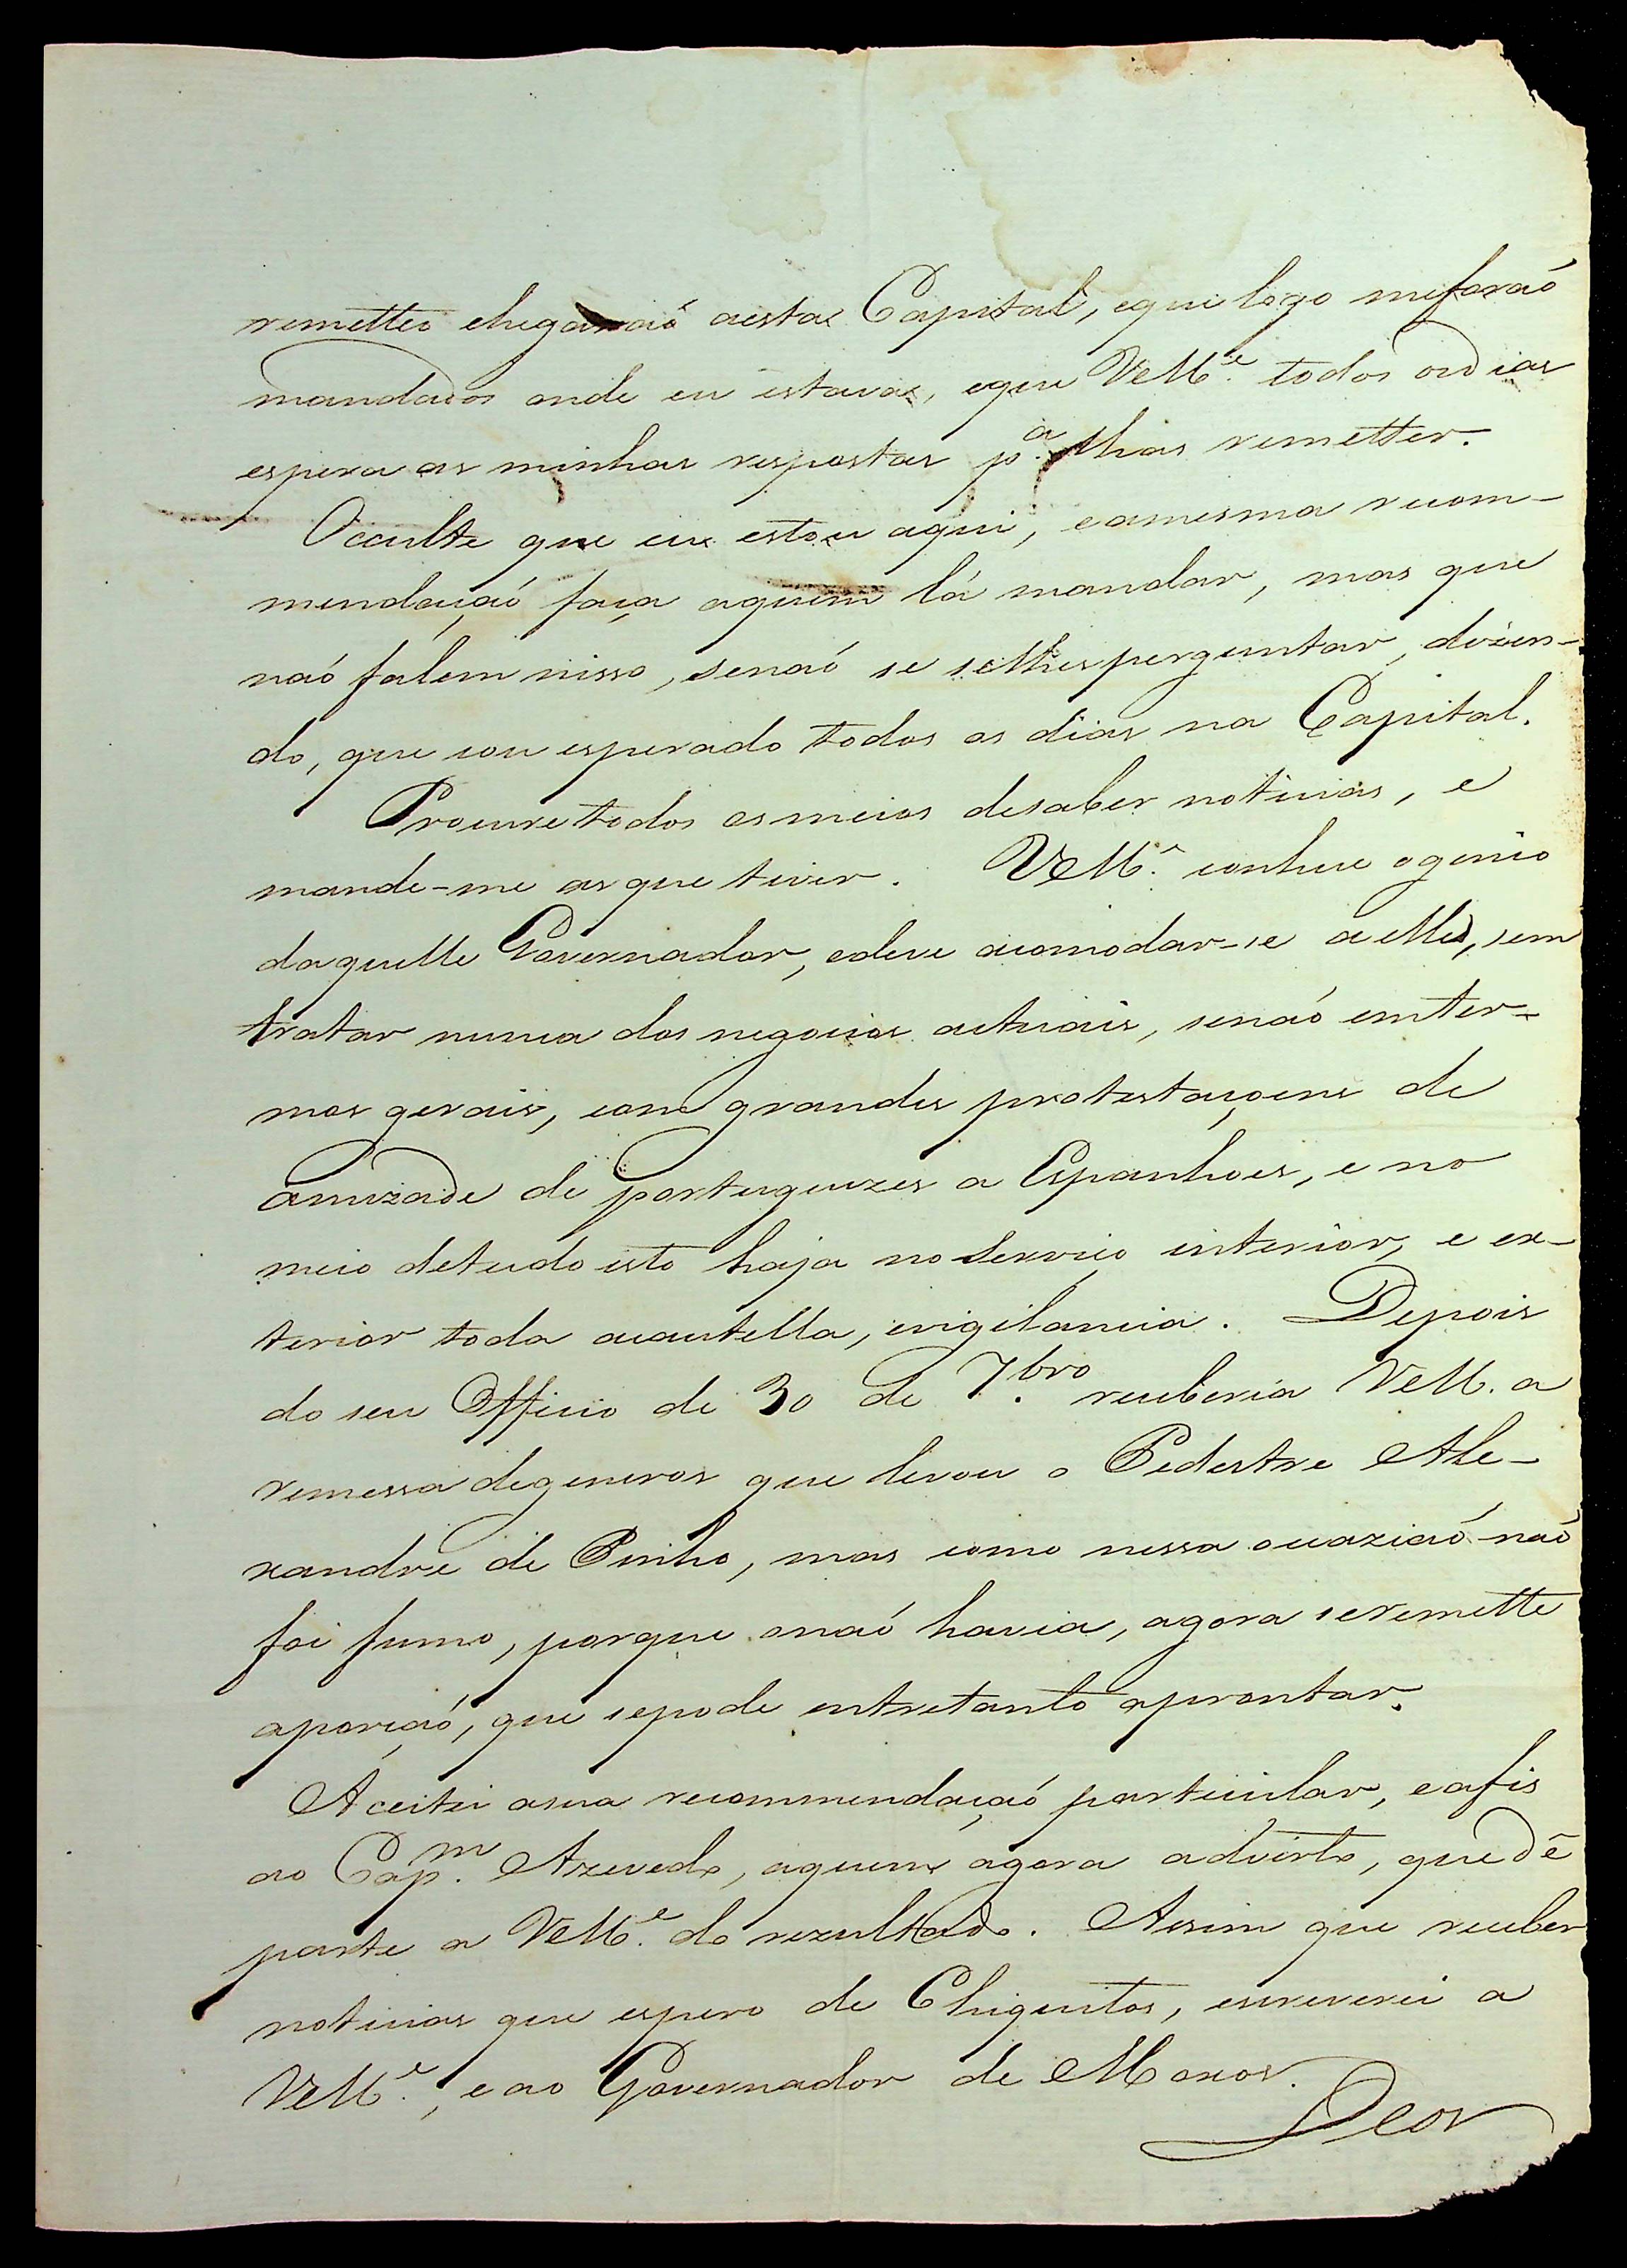 remetteo chegaraõ aesta Capital, eque logo meforaõ
mandados onde eu estava, eque VeM.ce todos os dias
espera as minhas respostas p.a lhas remetter.
Occulte que eu estou aqui, eamesma recom-
mendaçaõ faça aquem lá mandar, mas que
naõ falem nisso, senaõ se selhes perguntar, dizen-
do, que sou esperado todos os dias na Capital.
Procure todos osmeios desaber noticias, e
mande-me asque tiver. VeM.e conhece ogenio
daquelle Governador, edeve acomodar-se a elle, sem
tratar nunca dos negocios actuais, senaõ emter-
mos gerais, com grandes protestaçoens de
amizade de portuguezes a Espanhoes, e no
meio detudo isto haja noServiço interior, e ex-
terior toda acautella, evigilancia. Depois
do seu Officio de 30 de 7.bro receberia VeM. a
remessa degeneros que levou o Pedestre Ale-
xandre de Pinho, mas como nessa occaziaõ naõ
foi fumo, porque onaõ havia, agora seremette
aporçaõ, que sepode entretanto aprontar.
Aceitei asua recommendaçaõ particular, eafis
ao Cap.m Azevedo, aquem agora advirto, que dê
parte a VeM.e do rezultado. Assim que receber
noticias que espero de Chiquitos, escreverei a
VeM.e, eao Governador de Moxos.
Deos